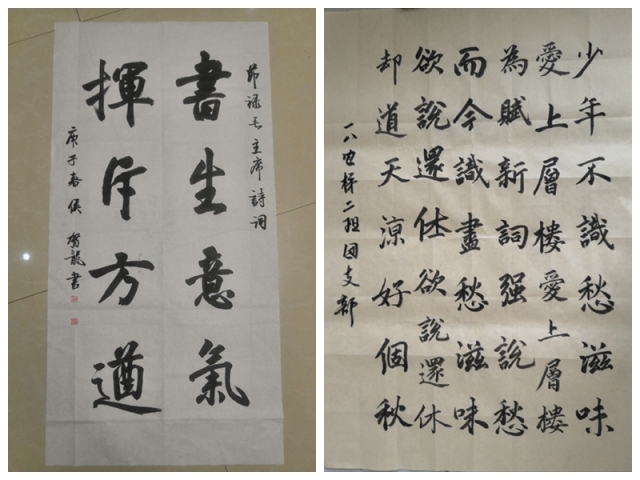 節祿毛主席詩詞
書生意氣
揮斥方遒
庚子春侯 賀龍書
少年不識愁滋味
愛上層樓愛上層樓
為賦新詞强說愁
而今識盡愁滋味
欲說還休欲說還休
却道天涼好個秋
一八电梯二班团支部